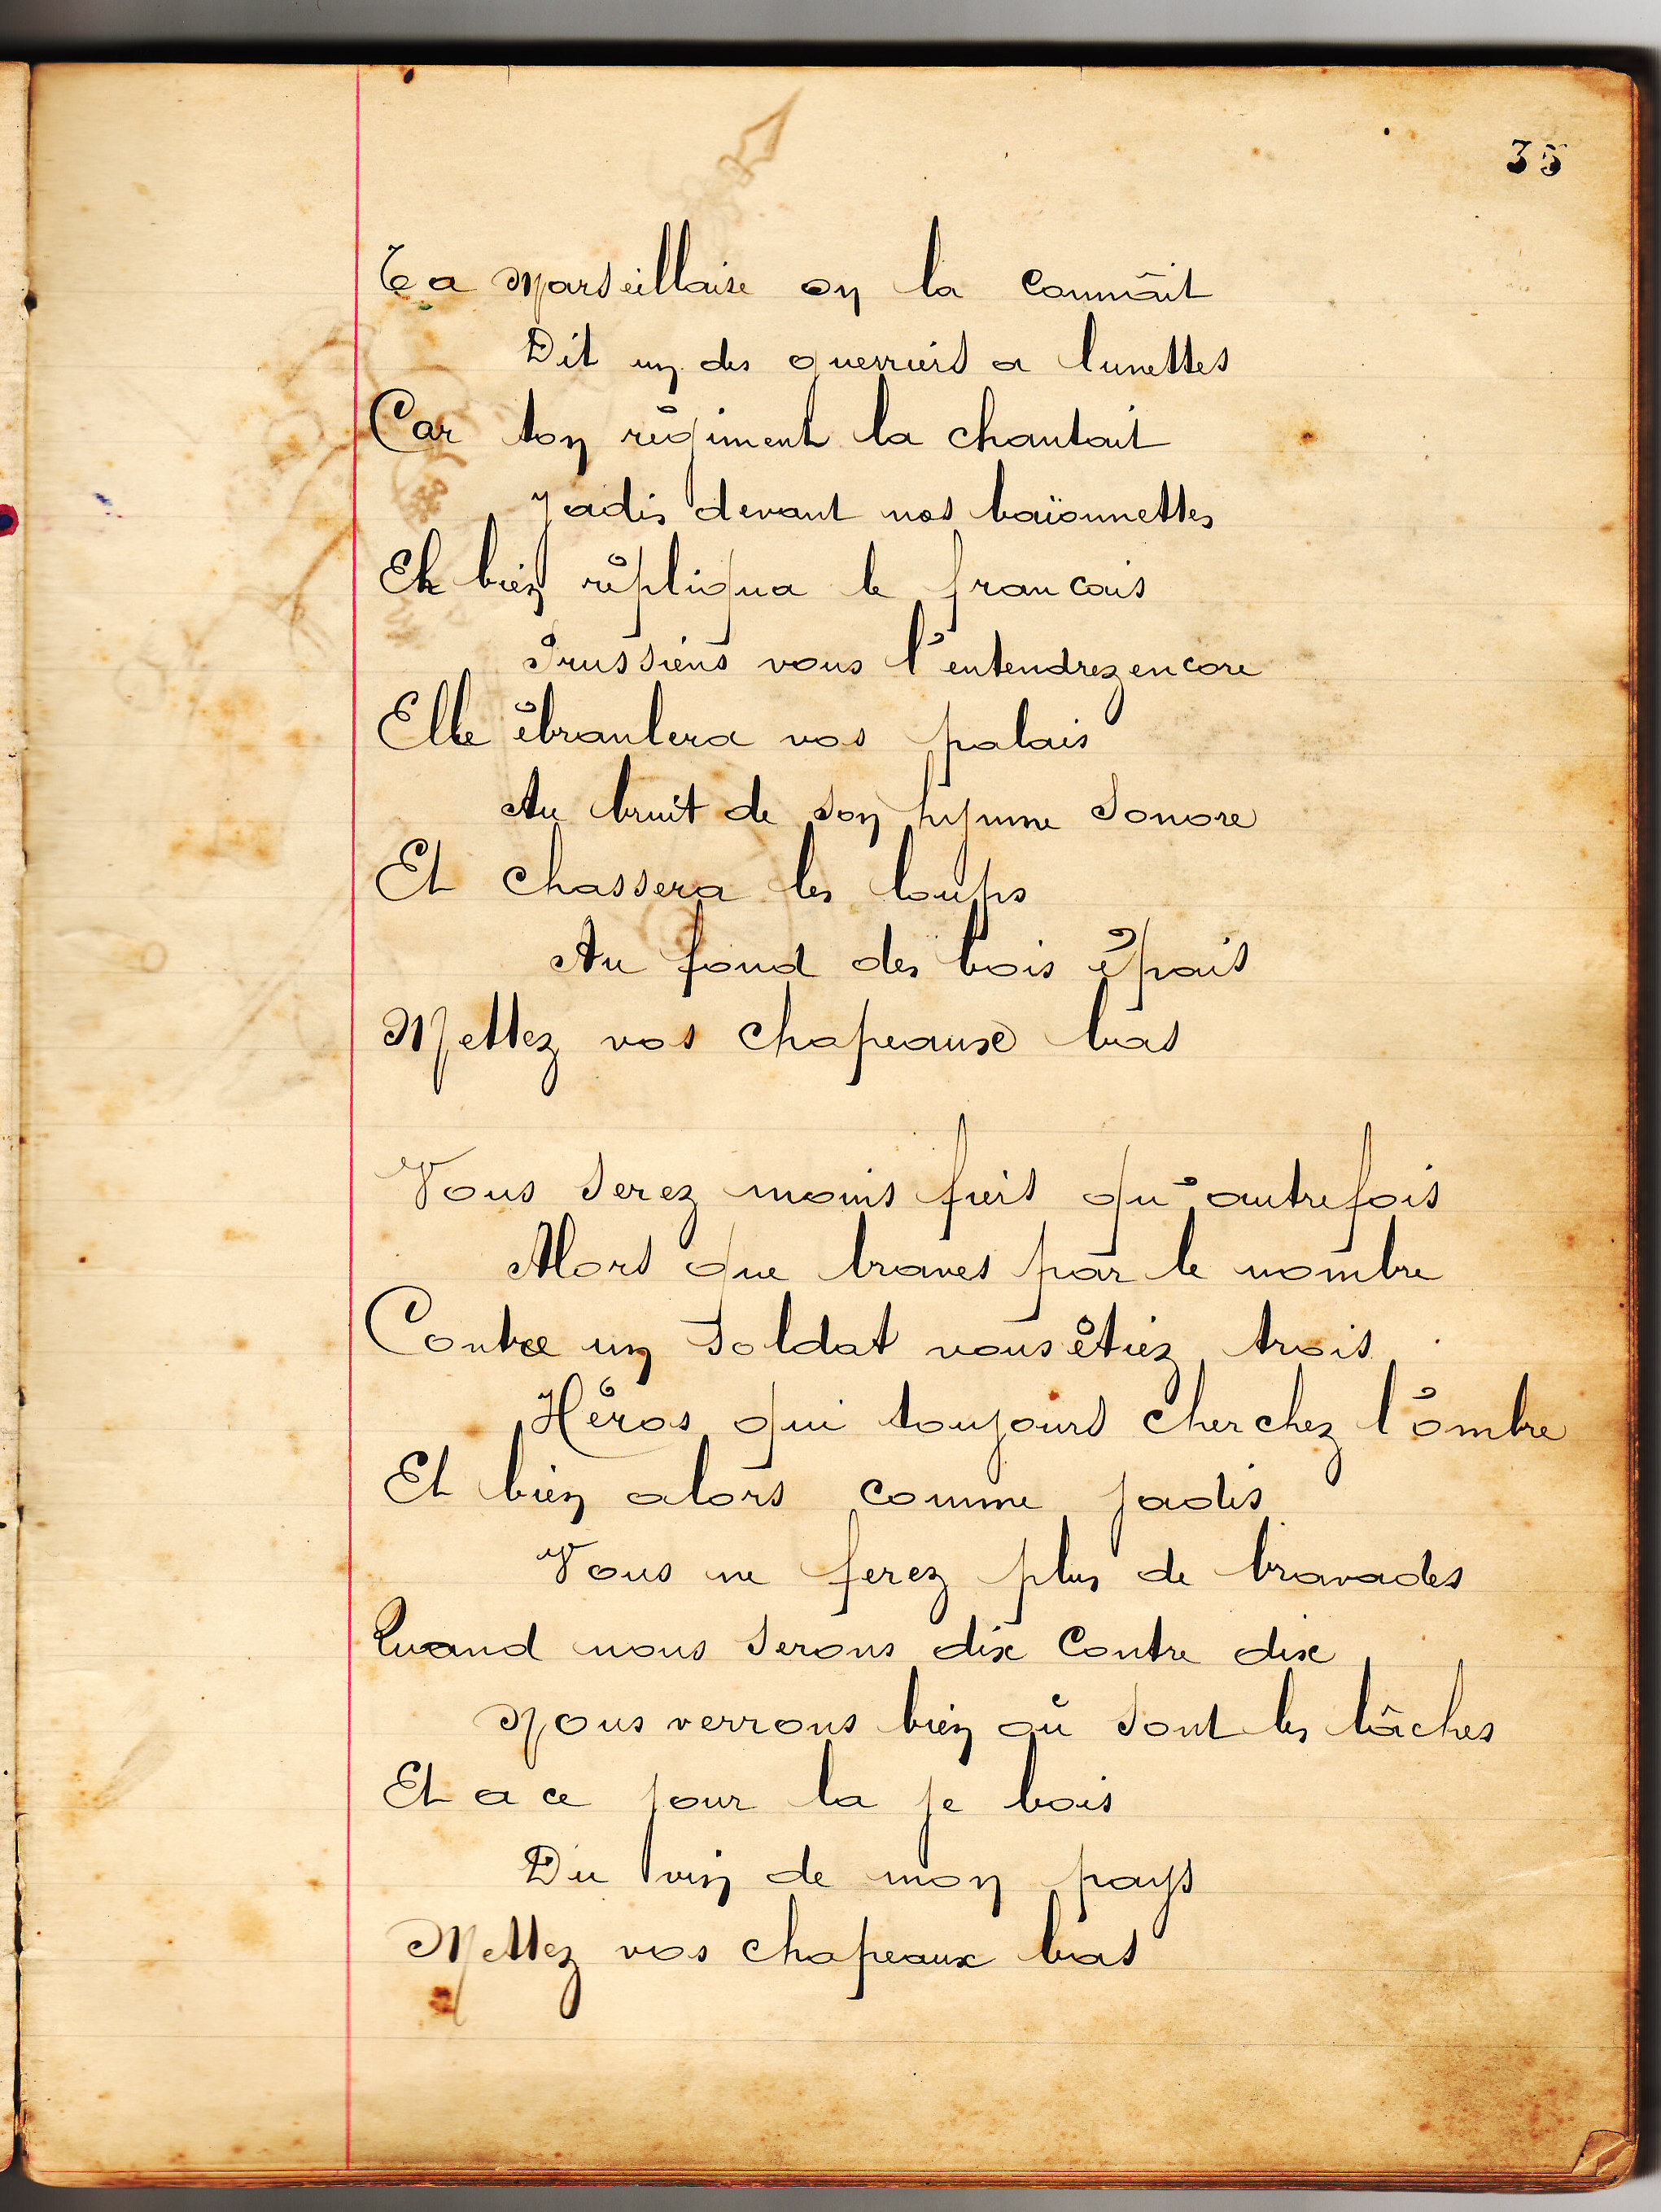 35
Ta Marseillaise on la connaît
Dit un des guerriers a lunettes
Car ton régiment la chantait
Jadis devant nos baïonnettes
Eh bien répliqua le francais
Prussiens vous l'entendrez encore
Elle ébranlera vos palais
Au bruit de son hymne sonore
Et chassera les loups
Au fond des bois épais
Mettez vos chapeaux bas
Vous serez moins fiers qu'autrefois
Alors que braves par le nombre
Contre un soldat vous étiez trois
Héros qui toujours cherchez l'ombre
Et bien alors comme jadis
Vous ne ferez plus de bravades
Quand nous serons dix contre dix
Nous verrons bien où sont les lâches
Et a ce jour la je bois
Du vin de mon pays
Mettez vos chapeaux bas